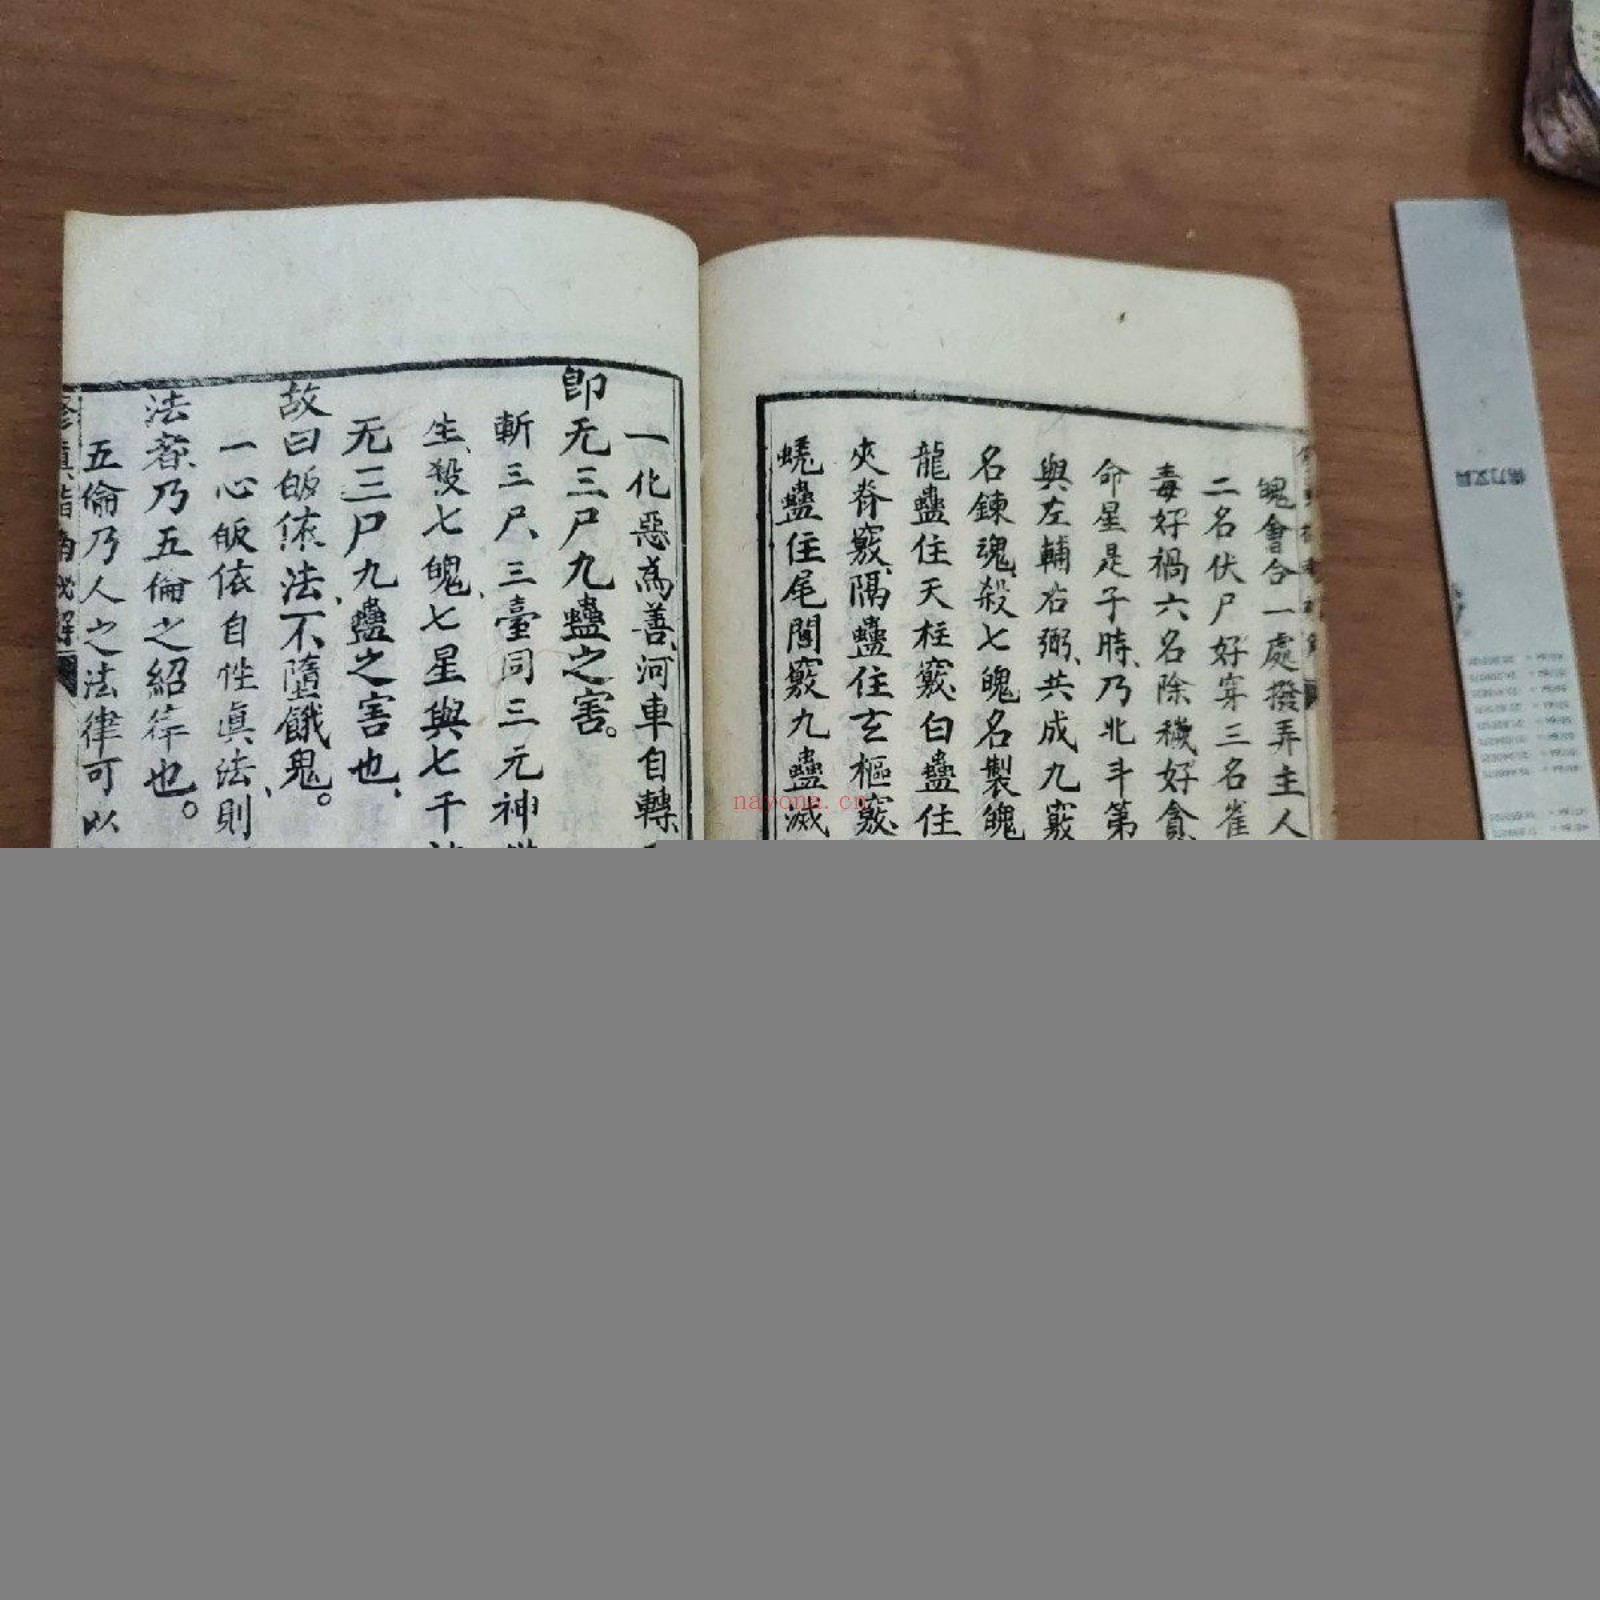 魄會合一處撥弄主人
二名伏尸好穿三名雀
毒好禍六名除穢好貪
命星是子時乃北斗第
與左輔右弼共成九竅
名鍊魂殺七魄名製魄
龍蠱住天柱竅白蠱住
夾脊竅隔蠱住玄樞竅
蟯蠱住尾閭竅九蠱滅
一化惡為善河車自轉
即无三尸九蠱之害。
斬三尸三臺同三元神
生殺七魄七星與七千
无三尸九蠱之害也
故曰皈依法不墮餓鬼。
一心皈依自性眞法則
法者乃五倫之紹
也。
五倫乃人之法律可以
修真指南
解
nayona.cn